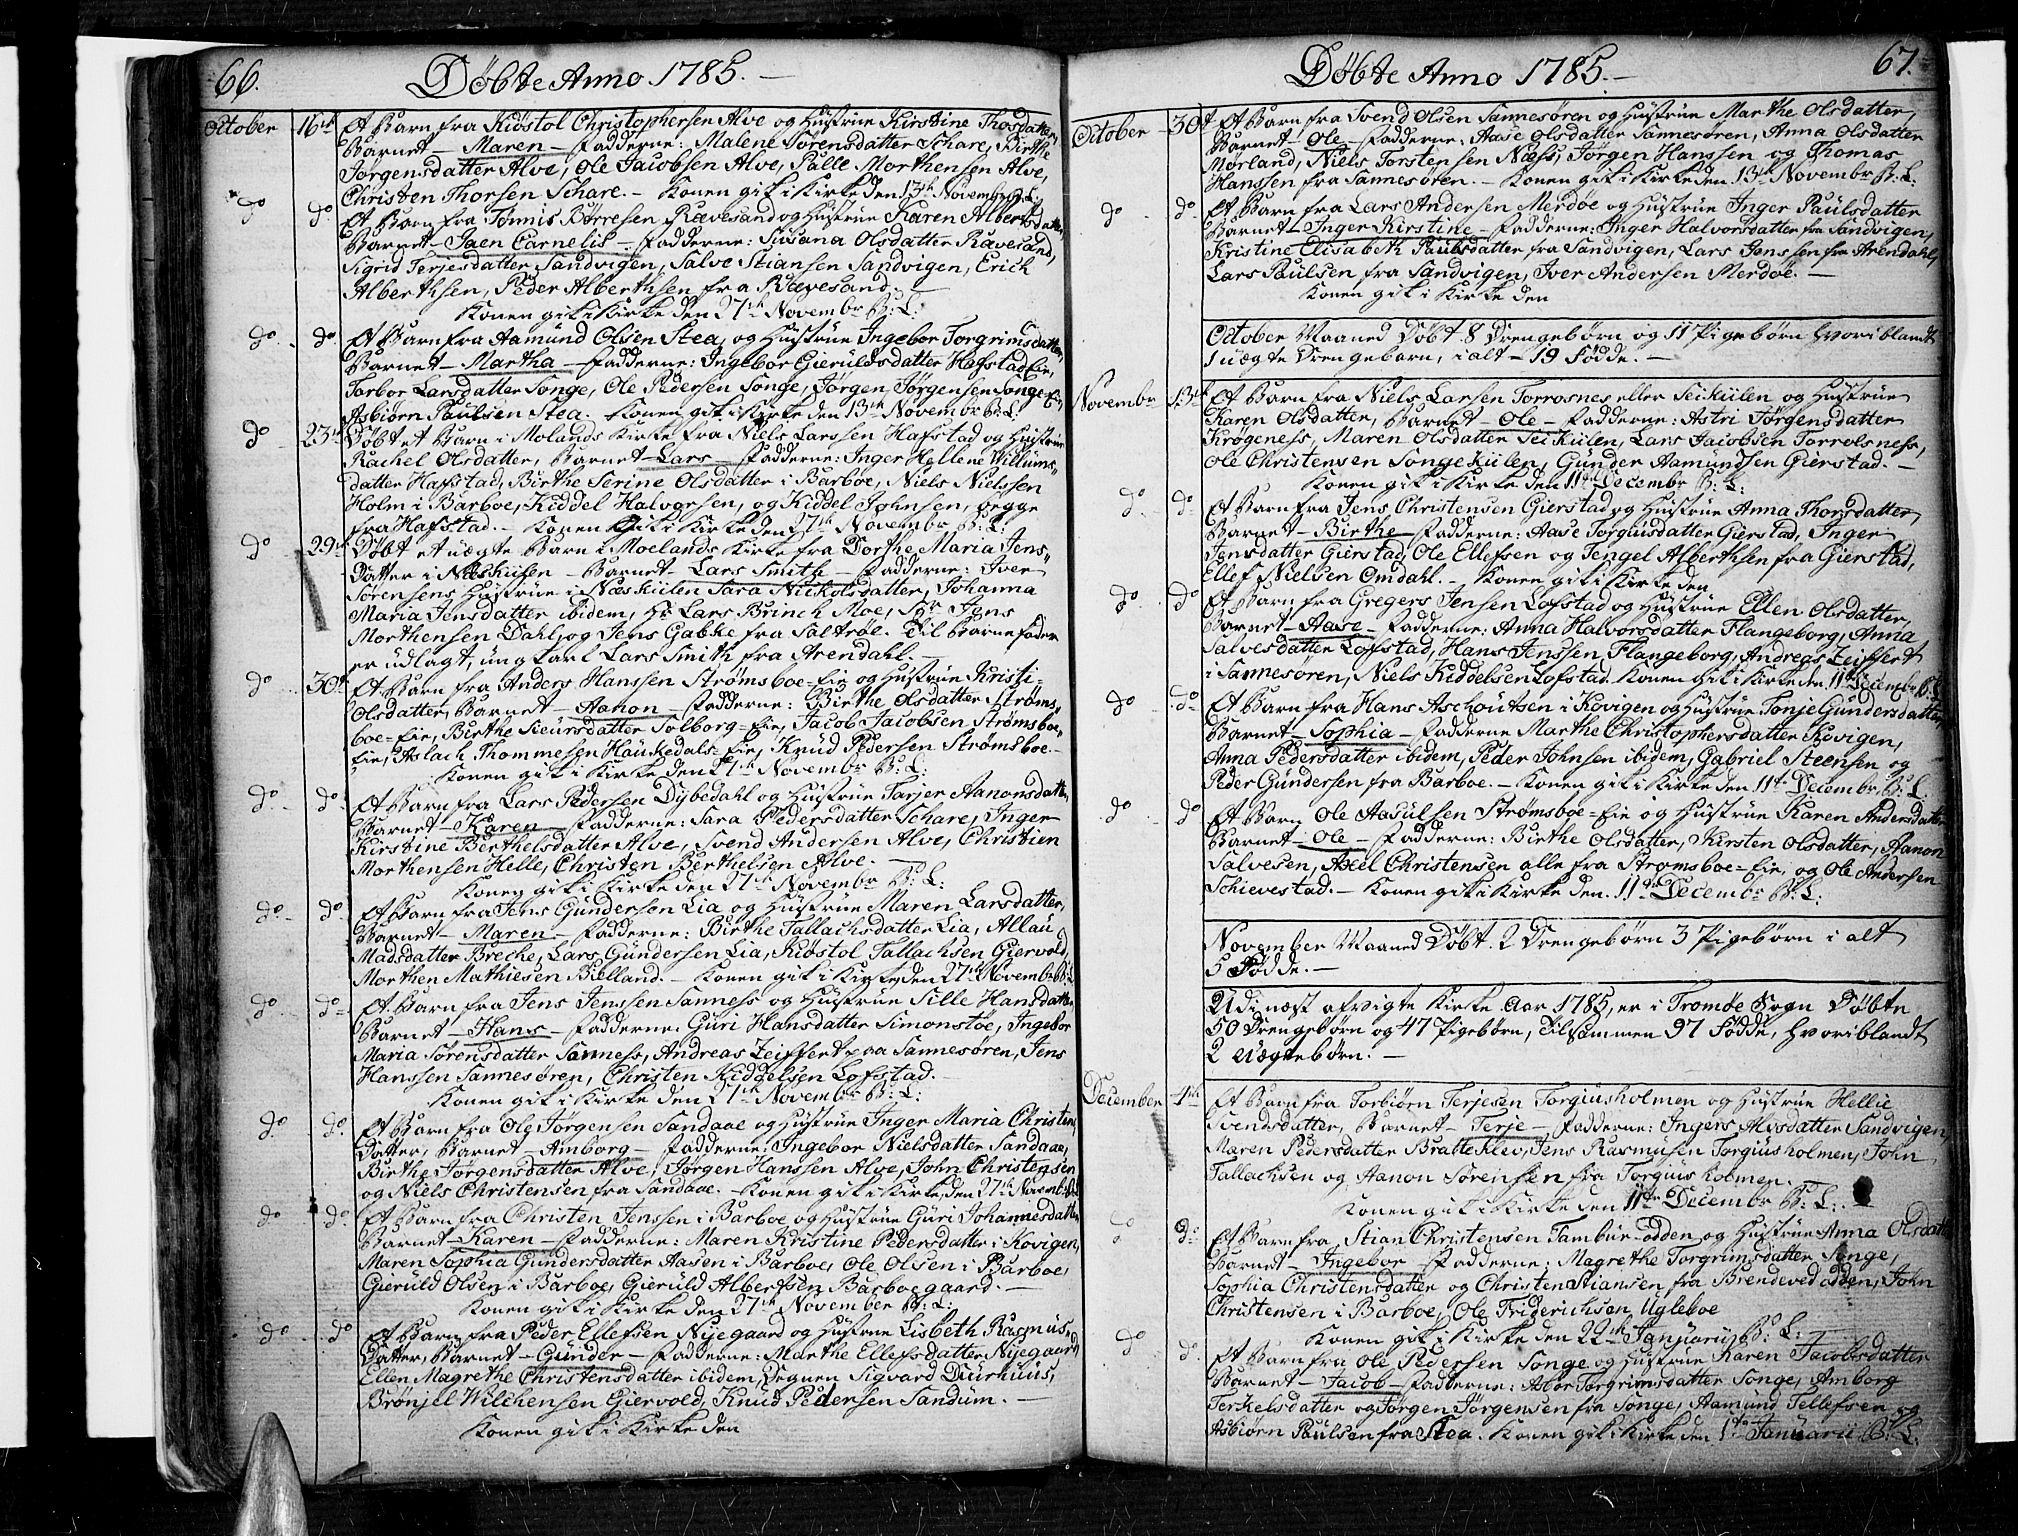 66.
Døbte Anno 1785.
October 16de Et Barn fra Kiøstol Christophersen Alve og Hustrue Kirstine Thorsdatter,
Barnet - Maren - Fadderne: Malene Sørensdatter Schare, Birthe
Jørgensdatter Alve, Ole Jacobsen Alve, Palle Morthensen Alve,
Christen Thorsen Schare. - Konen gik i Kirke den 13de Novembr B: L:
do do Et Barn fra Tønnis Børresen Rævesand og Hustrue Karen Albertsdatter,
Barnet - Jaen Cornelis - Fadderne: Susana Olsdatter Ravesand,
Sigrid Terjesdatter Sandvigen, Salve Stiansen Sandvigen, Erich
Alberthsen, Peder Alberthsen fra Rævesand. -
Konen gik i Kirke den 27de Novembr B: L:
do do Et Barn fra Aamund Olsen Stea, og Hustrue Ingebor Torgrimsdatter,
Barnet - Martha - Fadderne: Ingebor Gieruldsdatter Hafstad Eie,
Tarbor Larsdatter Songe, Ole Pedersen Songe, Jørgen Jørgensen Songe Eie,
Asbiørn Paulsen Stea. Konen gik i Kirke den 13de Novembr B: L:
do 23de Døbt et Barn i Molands Kirke fra Niels Larssen Hafstad og Hustrue
Rachel Olsdatter, Barnet - Lars - Fadderne: Inger Hellene Willums-
datter Hafstad, Birthe Serine Olsdatter i Barboe, Niels Nielssen
Holm i Barboe, Kiddel Halvorsen, og Kiddel Johnsen, begge
fra Hafstad. - Konen gik i Kirke den 27de Novembr B: L:
do 29de Døbt et uægte Barn i Moelands Kirke fra Dorthe Maria Jens-
Datter i Næskiilen - Barnet - Lars Smith - Fadderne: Iver
Sørensens Hustrue i Næskiilen Sara Nicholsdatter, Johanna
Maria Jensdatter ibidem, Hr Lars Brinch Moe, Sgr Jens
Morthensen Dahl, og Jens Gabke fra Saltrøe. Til Barnefader
er udlagt, ungkarl Lars Smith fra Arendahl. -
do 30te Et Barn fra Anders Hanssen Strømsboe-Eie og Hustrue Kristi-
Olsdatter, Barnet - Aanon - Fadderne: Birthe Olsdatter Strøms-
boe-Eie, Birthe Sieursdatter Solborg-Eie, Jacob Jacobsen Strømsboe-
Eie, Aslach Thommesen Haukedals-Eie, Knud Pedersen Strømsboe-
Konen gik i Kirke den 27de Novembr B: L:
do do Et Barn fra Lars Pedersen Dybedahl og Hustrue Tarjer Aanonsdatter,
Barnet - Karen - Fadderne: Sara Pedersdatter Schare, Inger
Kirstine Berthelsdatter Alve, Svend Andersen Alve, Christien
Morthensen Helle, Christen Berthelsen Alve. -
Konen gik i Kirke den 27de Novembr B: L:
do do Et Barn fra Jens Gundersen Lia og Hustrue Maren Larsdatter,
Barnet - Maren - Fadderne: Birthe Tallachsdatter Lia, Allau
Madsdatter Breche, Lars Gundersen Lia, Kiøstol Tallachsen Giervold,
Morthen Mathiesen Bielland. - Konen gik i Kirke den 27de Novembr B: L:
do do Et Barn fra Jens Jenssen Sanness og Hustrue Sille Hansdatter
Barnet - Hans - Fadderne: Guri Hansdatter Simonstøe, Ingebor
Maria Sørensdatter Sanness, Andreas Zeiffert paa Sannesøren, Jens
Hanssen Sannesøren, Christen Kiddelsen Lofstad. -
Konen gik i Kirke den 27de Novembr B: L:
do do Et Barn fra Ole Jørgensen Sandaae og Hustrue Inger Maria Christen
Datter, Barnet - Amborg - Fadderne: Ingebor Nielsdatter Sandaae,
Birthe Jørgensdatter Alve, Jørgen Hanssen Alve, John Christensen
og Niels Christensen fra Sandaae. - Konen gik i Kirke den 27de Novembr B: L:
do do Et Barn fra Christen Jenssen i Barboe og Hustrue Guri Johannesdatter
Barnet - Karen - Fadderne: Maren Kristine Pedersdatter i Kovigen,
Maren Sophia Gundersdatter Aasen i Barboe, Ole Olsen i Barboe,
Gieruld Olsen i Barboe, Gieruld Albertsen Barboegaard. -
Konen gik i Kirke den 27de November B: L:
do do Et Barn fra Peder Ellefsen Nyegaard og Hustrue Lisbeth Rasmus-
Datter, Barnet - Gunder - Fadderne: Marthe Ellefsdatter Nyegaard,
Ellen Magrethe Christensdatter ibidem, Degnen Sigvard Duurhuus,
Brønjel Wilchensen Giervold, Knud Pedersen Sandum. -
Konen gik i Kirke den
67.
Døbte Anno 1785.
October 30te Et Barn fra Svend Olsen Sannesøren og Hustrue Marthe Olsdatter,
Barnet - Ole - Fadderne: Aase Olsdatter Sannesøren, Anna Olsdatter
Mørland, Niels Torstensen Næss, Jørgen Hanssen og Thomas
Hanssen fra Sannesøren. - Konen gik i Kirke den 13de Novembr B: L:
do do Et Barn fra Lars Andersen Merdøe og Hustrue Inger Paulsdatter
Barnet - Inger Kirstine - Fadderne: Inger Halvorsdatter fra Sandvigen,
Kristine Elisabeth Paulsdatter fra Sandvigen, Lars Jenssen fra Arendahl,
Lars Paulsen fra Sandvigen, Iver Andersen Merdøe. -
Konen gik i Kirke den
October Maaned Døbt 8 Drengebørn og 11 Pigebørn hvoriblandt
1 uægte Drengebarn, i alt - 19 Fødde. -
Novembr 13de Et Barn fra Niels Larsen Torrosnes eller Seikiilen og Hustrue
Karen Olsdatter, Barnet - Ole - Fadderne: Astri Jørgensdatter
Krogeness, Maren Olsdatter Seikiilen, Lars Jacobsen Torrolsness,
Ole Christensen Songekiilen, Gunder Aamundsen Gierstad. -
Konen gik i Kirke den 11te Decembr B: L:
do do Et Barn fra Jens Christensen Gierstad og Hustrue Anna Thorsdatter
Barnet - Birthe - Fadderne: Aase Torgiusdatter Gierstad, Inger
Jensdatter Gierstad, Ole Ellefsen og Tengel Alberthsen fra Gierstad,
Ellef Nielsen Omdahl. - Konen gik i Kirke den
do do Et Barn fra Gregers Jensen Lofstad og Hustrue Ellen Olsdatter,
Barnet - Aase - Fadderne: Anna Halvorsdatter Flangeborg, Anna
Salvesdatter Lofstad, Hans Jenssen Flangeborg, Andreas Zeiffert
i Sannesøren, Niels Kiddelsen Lofstad. Konen gik i Kirke den 11te Decembr B: L:
do do Et Barn fra Hans Aschoutsen i Kovigen og Hustrue Tonje Gundersdatter,
Barnet - Sophia - Fadderne Marthe Christophersdatter Kovigen,
Anna Pedersdatter ibidem, Peder Johnsen ibidem, Gabriel Steensen og
Peder Gundersen fra Barboe. - Konen gik i Kirke den 11te Decembr B: L:
do do Et Barn Ole Aasulsen Strømsboe-Eie og Hustrue Karen Andersdatter
Barnet - Ole - Fadderne: Birthe Olsdatter, Kirsten Olsdatter, Aanon
Salvesen, Axel Christensen alle fra Strømsboe-Eie, og Ole Andersen
Schievestad. - Konen gik i Kirke den 11te Decembr B: L:
November Maaned Døbt 2 Drengebørn 3 Pigebørn i alt
5 Fødde. -
Udi næst afvigte Kirke Aar 1785, er i Tromøe Sogn Døbte
50 Drengebørn og 47 Pigebørn, Tilsammen 97 Fødde, hvoriblandt
2 uægtebørn. -
December 4de Et Barn fra Torbiørn Terjesen Torgiusholmen og Hustrue Hellie
Svendsdatter, Barnet - Terje - Fadderne: Ingers Alvsdatter Sandvigen,
Maren Pedersdatter Bratteklev, Jens Rasmusen Torgiusholmen, John
Tallachsen og Aanon Sørensen fra Torgiusholmen.
Konen gik i Kirke den 11te Decembr B: L:
do do Et Barn fra Stian Christensen Tambur-odden og Hustrue Anna Olsdatter
Barnet - Ingebor - Fadderne: Magrethe Torgrimsdatter Songe,
Sophia Christensdatter og Christen Stiansen fra Brendeved odden, John
Christensen i Barboe, Ole Friderichsen Ugleboe
Konen gik i Kirke den 22de Januarii B: L:
do do Et Barn fra Ole Pedersen Songe og Hustrue Karen Jacobsdatter
Barnet - Jacob - Fadderne: Asbor Torgrimsdatter Songe, Amborg
Terkelsdatter og Jørgen Jørgensen fra Songe, Aamund Tellefsen og
Asbiørn Paulsen fra Stea. Konen gik i Kirke den 1te Januarii B: L: